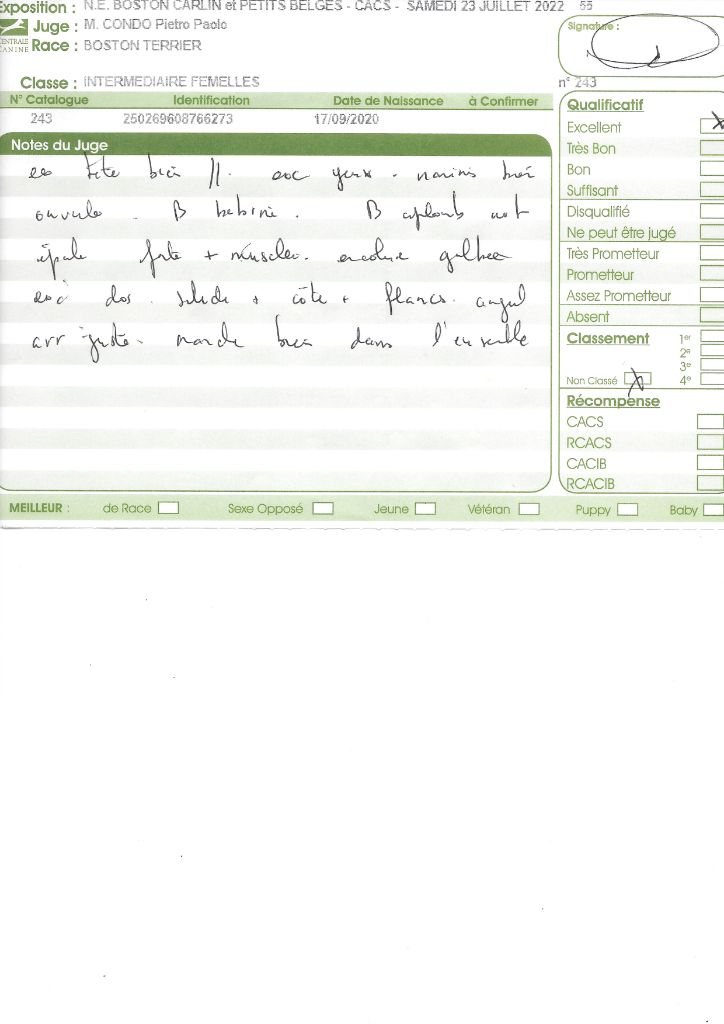 Exposition : N.E. BOSTON CARLIN et PETITS BELGES - CACS - SAMEDI 23 JUILLET 2022 55
Juge : M. CONDO Pietro Paolo
CENTRALE CANINE
Race : BOSTON TERRIER
Signature :
Classe : INTERMEDIAIRE FEMELLES
n° 243
N° Catalogue Identification Date de Naissance à Confirmer
243 250269608766273 17/09/2020
Notes du Juge
tête bien //. exc yeux. narines bien
ouverte. B babine. B aplombs ant
épaule forte + muscles. encolure galbée
exc dos. solide + côte + flancs. angul
arr juste. marche bien dans l'ensemble
Qualificatif
Excellent
Très Bon
Bon
Suffisant
Disqualifié
Ne peut être jugé
Très Prometteur
Prometteur
Assez Prometteur
Absent
Classement 1er
2e
3e
Non Classé 4e
Récompense
CACS
RCACS
CACIB
RCACIB
MEILLEUR : de Race Sexe Opposé Jeune Vétéran Puppy Baby